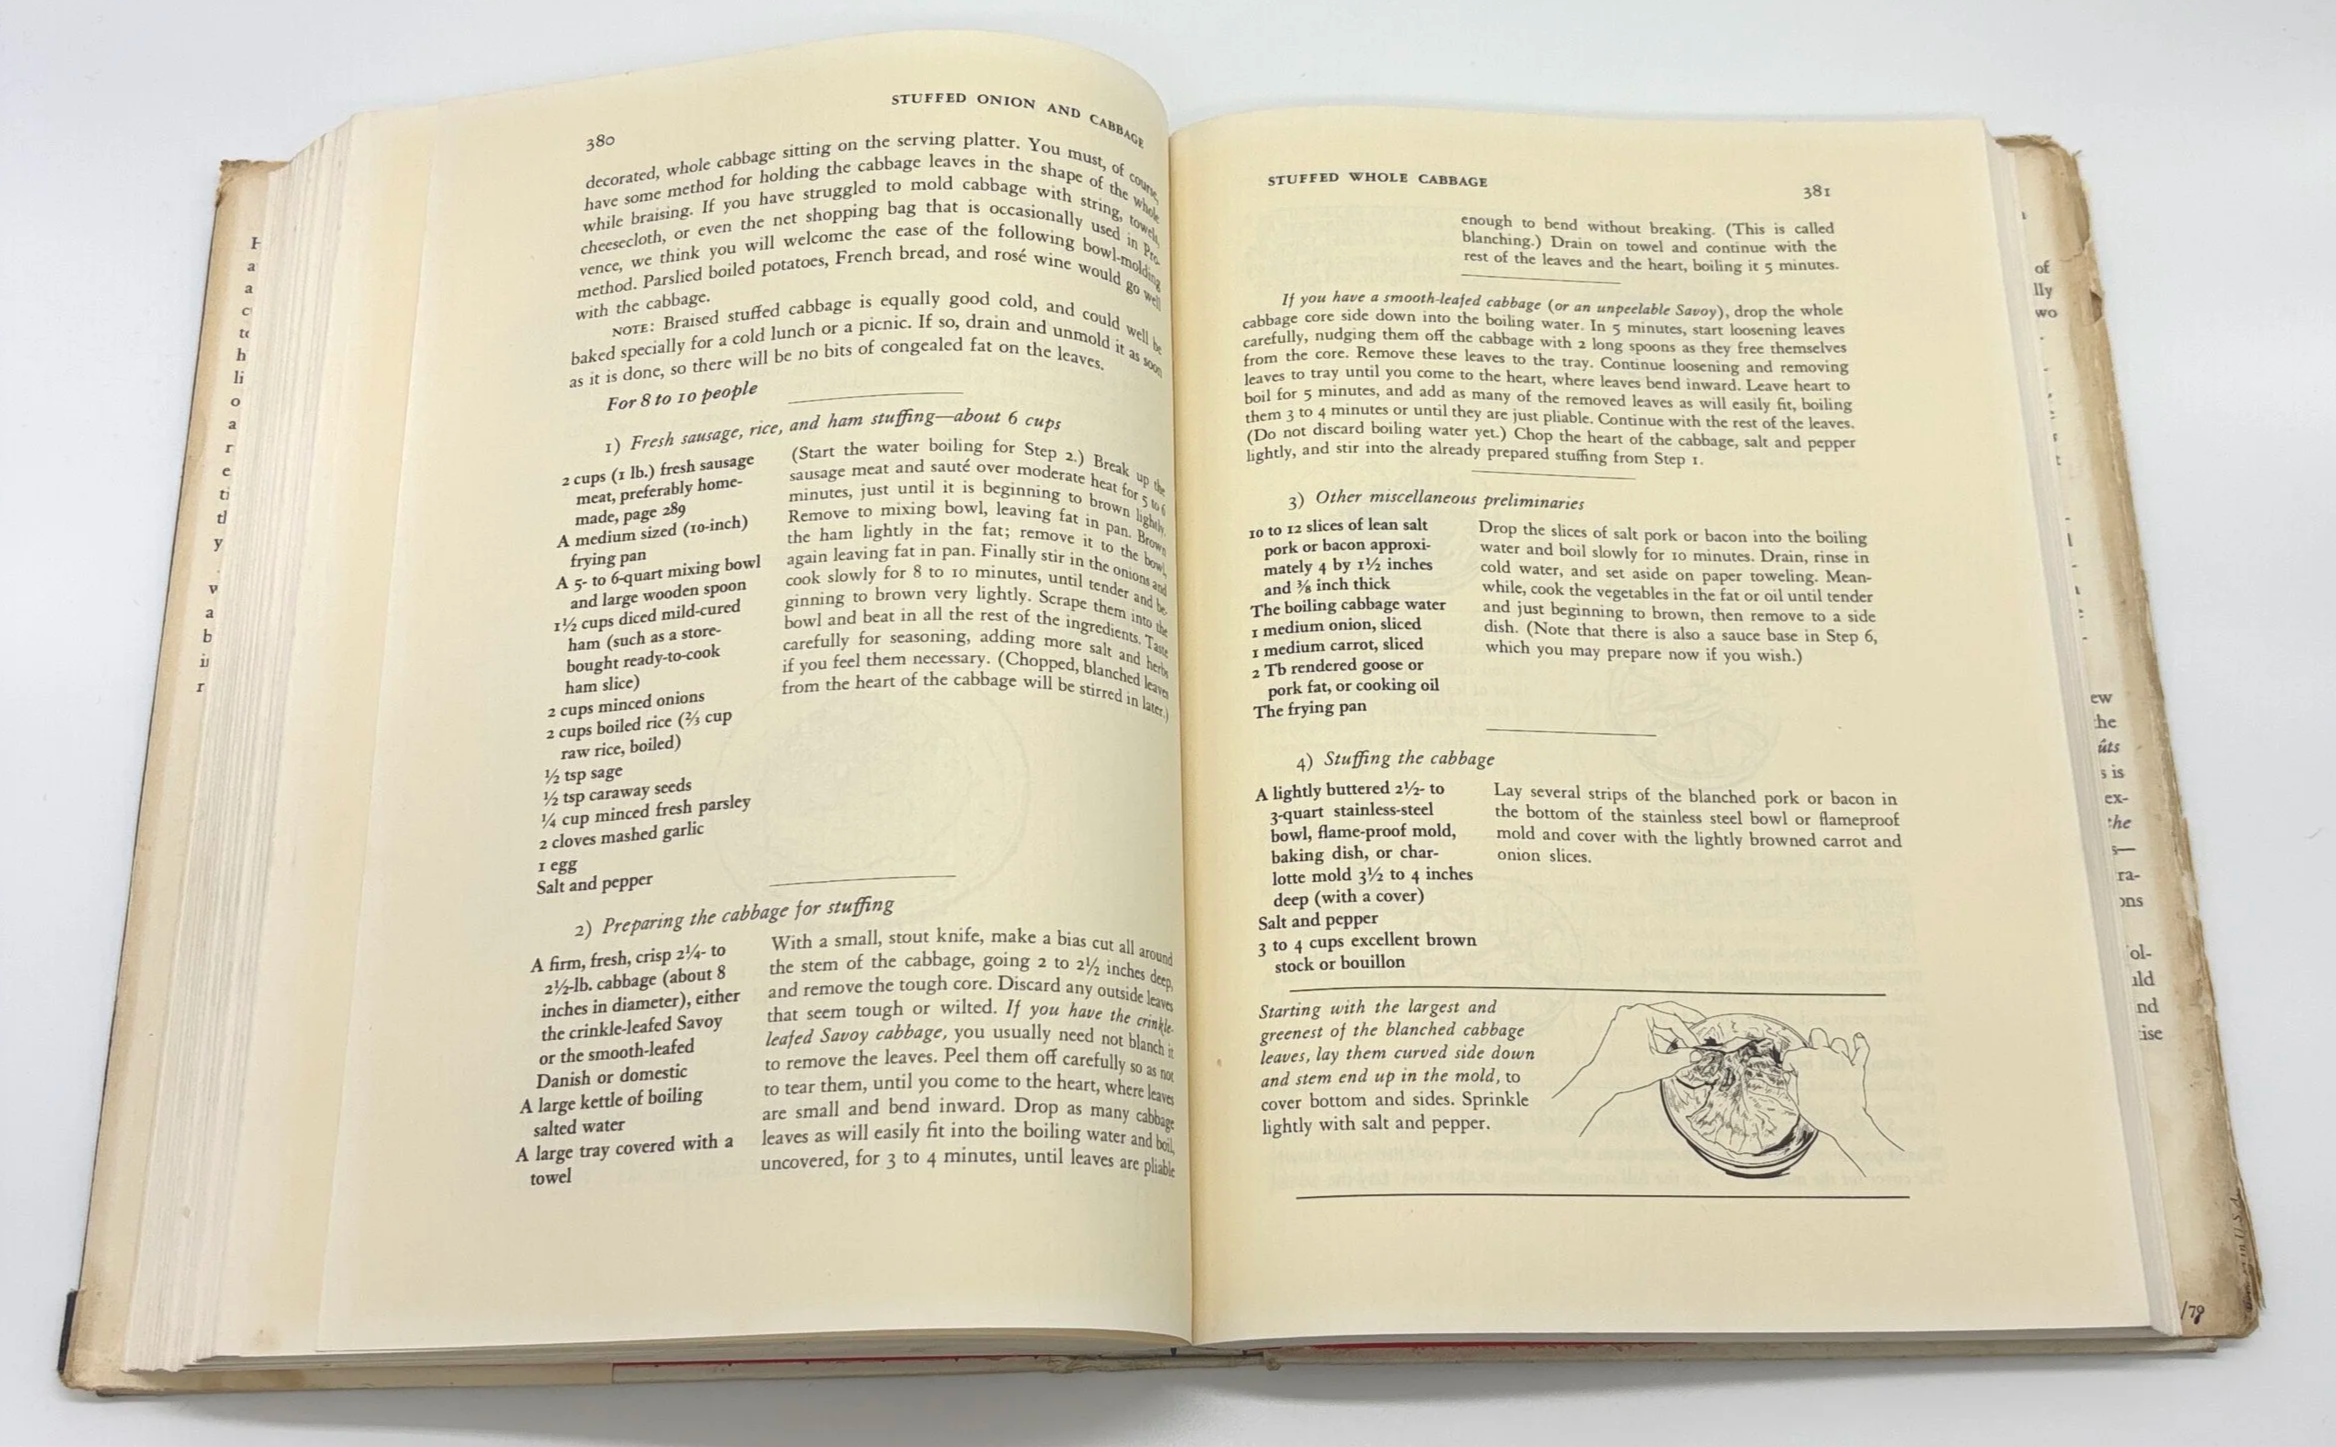 380
STUFFED ONION AND CABBAGE
decorated, whole cabbage sitting on the serving platter. You must, of course,
have some method for holding the cabbage leaves in the shape of the whole
while braising. If you have struggled to mold cabbage with string, towels,
cheesecloth, or even the net shopping bag that is occasionally used in Pro-
vence, we think you will welcome the ease of the following bowl-molding
method. Parslied boiled potatoes, French bread, and rosé wine would go well
with the cabbage.
NOTE: Braised stuffed cabbage is equally good cold, and could well be
baked specially for a cold lunch or a picnic. If so, drain and unmold it as soon
as it is done, so there will be no bits of congealed fat on the leaves.
For 8 to 10 people
1) Fresh sausage, rice, and ham stuffing—about 6 cups
2 cups (1 lb.) fresh sausage
meat, preferably home-
made, page 289
A medium sized (10-inch)
frying pan
A 5- to 6-quart mixing bowl
and large wooden spoon
1½ cups diced mild-cured
ham (such as a store-
bought ready-to-cook
ham slice)
2 cups minced onions
2 cups boiled rice (⅔ cup
raw rice, boiled)
½ tsp sage
½ tsp caraway seeds
¼ cup minced fresh parsley
2 cloves mashed garlic
1 egg
Salt and pepper
(Start the water boiling for Step 2.) Break up the
sausage meat and sauté over moderate heat for 5 to 6
minutes, just until it is beginning to brown lightly.
Remove to mixing bowl, leaving fat in pan. Brown
the ham lightly in the fat; remove it to the bowl,
again leaving fat in pan. Finally stir in the onions and
cook slowly for 8 to 10 minutes, until tender and be-
ginning to brown very lightly. Scrape them into the
bowl and beat in all the rest of the ingredients. Taste
carefully for seasoning, adding more salt and herbs
if you feel them necessary. (Chopped, blanched leaves
from the heart of the cabbage will be stirred in later.)
2) Preparing the cabbage for stuffing
A firm, fresh, crisp 2¼- to
2½-lb. cabbage (about 8
inches in diameter), either
the crinkle-leafed Savoy
or the smooth-leafed
Danish or domestic
A large kettle of boiling
salted water
A large tray covered with a
towel
With a small, stout knife, make a bias cut all around
the stem of the cabbage, going 2 to 2½ inches deep,
and remove the tough core. Discard any outside leaves
that seem tough or wilted. If you have the crinkle-
leafed Savoy cabbage, you usually need not blanch it
to remove the leaves. Peel them off carefully so as not
to tear them, until you come to the heart, where leaves
are small and bend inward. Drop as many cabbage
leaves as will easily fit into the boiling water and boil,
uncovered, for 3 to 4 minutes, until leaves are pliable
STUFFED WHOLE CABBAGE
381
enough to bend without breaking. (This is called
blanching.) Drain on towel and continue with the
rest of the leaves and the heart, boiling it 5 minutes.
If you have a smooth-leafed cabbage (or an unpeelable Savoy), drop the whole
cabbage core side down into the boiling water. In 5 minutes, start loosening leaves
carefully, nudging them off the cabbage with 2 long spoons as they free themselves
from the core. Remove these leaves to the tray. Continue loosening and removing
leaves to tray until you come to the heart, where leaves bend inward. Leave heart to
boil for 5 minutes, and add as many of the removed leaves as will easily fit, boiling
them 3 to 4 minutes or until they are just pliable. Continue with the rest of the leaves.
(Do not discard boiling water yet.) Chop the heart of the cabbage, salt and pepper
lightly, and stir into the already prepared stuffing from Step 1.
3) Other miscellaneous preliminaries
10 to 12 slices of lean salt
pork or bacon approxi-
mately 4 by 1½ inches
and ⅜ inch thick
The boiling cabbage water
1 medium onion, sliced
1 medium carrot, sliced
2 Tb rendered goose or
pork fat, or cooking oil
The frying pan
Drop the slices of salt pork or bacon into the boiling
water and boil slowly for 10 minutes. Drain, rinse in
cold water, and set aside on paper toweling. Mean-
while, cook the vegetables in the fat or oil until tender
and just beginning to brown, then remove to a side
dish. (Note that there is also a sauce base in Step 6,
which you may prepare now if you wish.)
4) Stuffing the cabbage
A lightly buttered 2½- to
3-quart stainless-steel
bowl, flame-proof mold,
baking dish, or char-
lotte mold 3½ to 4 inches
deep (with a cover)
Salt and pepper
3 to 4 cups excellent brown
stock or bouillon
Lay several strips of the blanched pork or bacon in
the bottom of the stainless steel bowl or flameproof
mold and cover with the lightly browned carrot and
onion slices.
Starting with the largest and
greenest of the blanched cabbage
leaves, lay them curved side down
and stem end up in the mold, to
cover bottom and sides. Sprinkle
lightly with salt and pepper.
of
lly
wo
ew
the
ûts
s is
ex-
the
ra-
ons
ol-
uld
nd
ise
/79